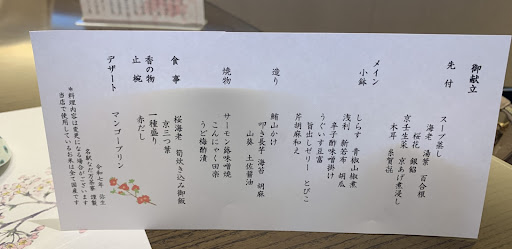 御献立
先付
スープ蒸し
海老 湯葉 百合根
桜花 銀餡
京壬生菜 京あげ煮浸し
木耳 糸賀喜
メイン
小鉢
しらす 青椒山椒煮
浅利 新若布 胡瓜
辛子酢味噌掛け
うぐいす豆富
旨出しゼリー とびこ
芹胡麻和え
造り
鮪山かけ
叩き長芋 海苔 胡麻
山葵 土佐醤油
焼物
サーモン蕗味噌焼
こんにゃく田楽
うど梅酢漬
食事
桜海老 筍炊き込み御飯
京三つ葉
香の物
一種盛り
止椀
赤だし
デザート
マンゴープリン
令和七年 弥生
名駅なだ万茶寮 謹製
*料理内容は変更になる場合がございます
当店で使用しているお米は全て国産です